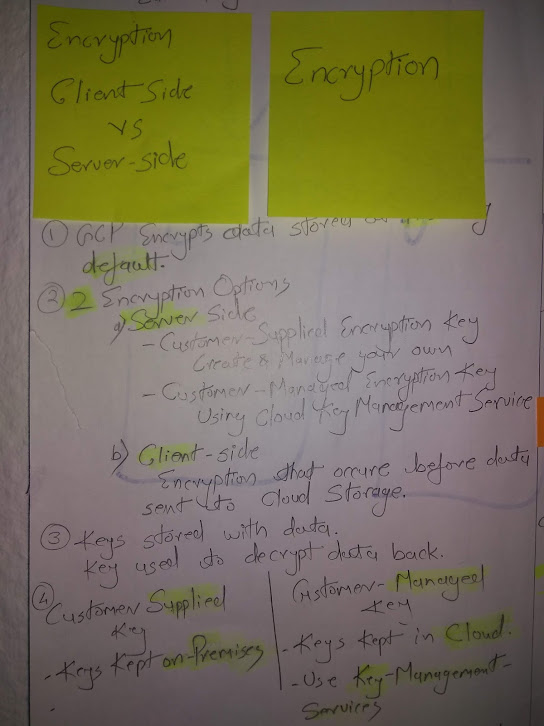 Encryption
Client Side
vs
Server-side
Encryption
① GCP Encrypts data stored
default.
② 2 Encryption Options
a) Server Side
- Customer-Supplied Encryption Key
Create & Manage your own
- Customer-Managed Encryption Key
Using Cloud Key Management Service
b) Client-side
Encryption that occure before data
sent to Cloud Storage.
③ Keys stored with data.
Key used to decrypt data back.
④
Customer Supplied
Key
- Keys Kept on-Premises
Customer-Managed
Key
- Keys Kept in Cloud.
- Use Key-Management-
Services